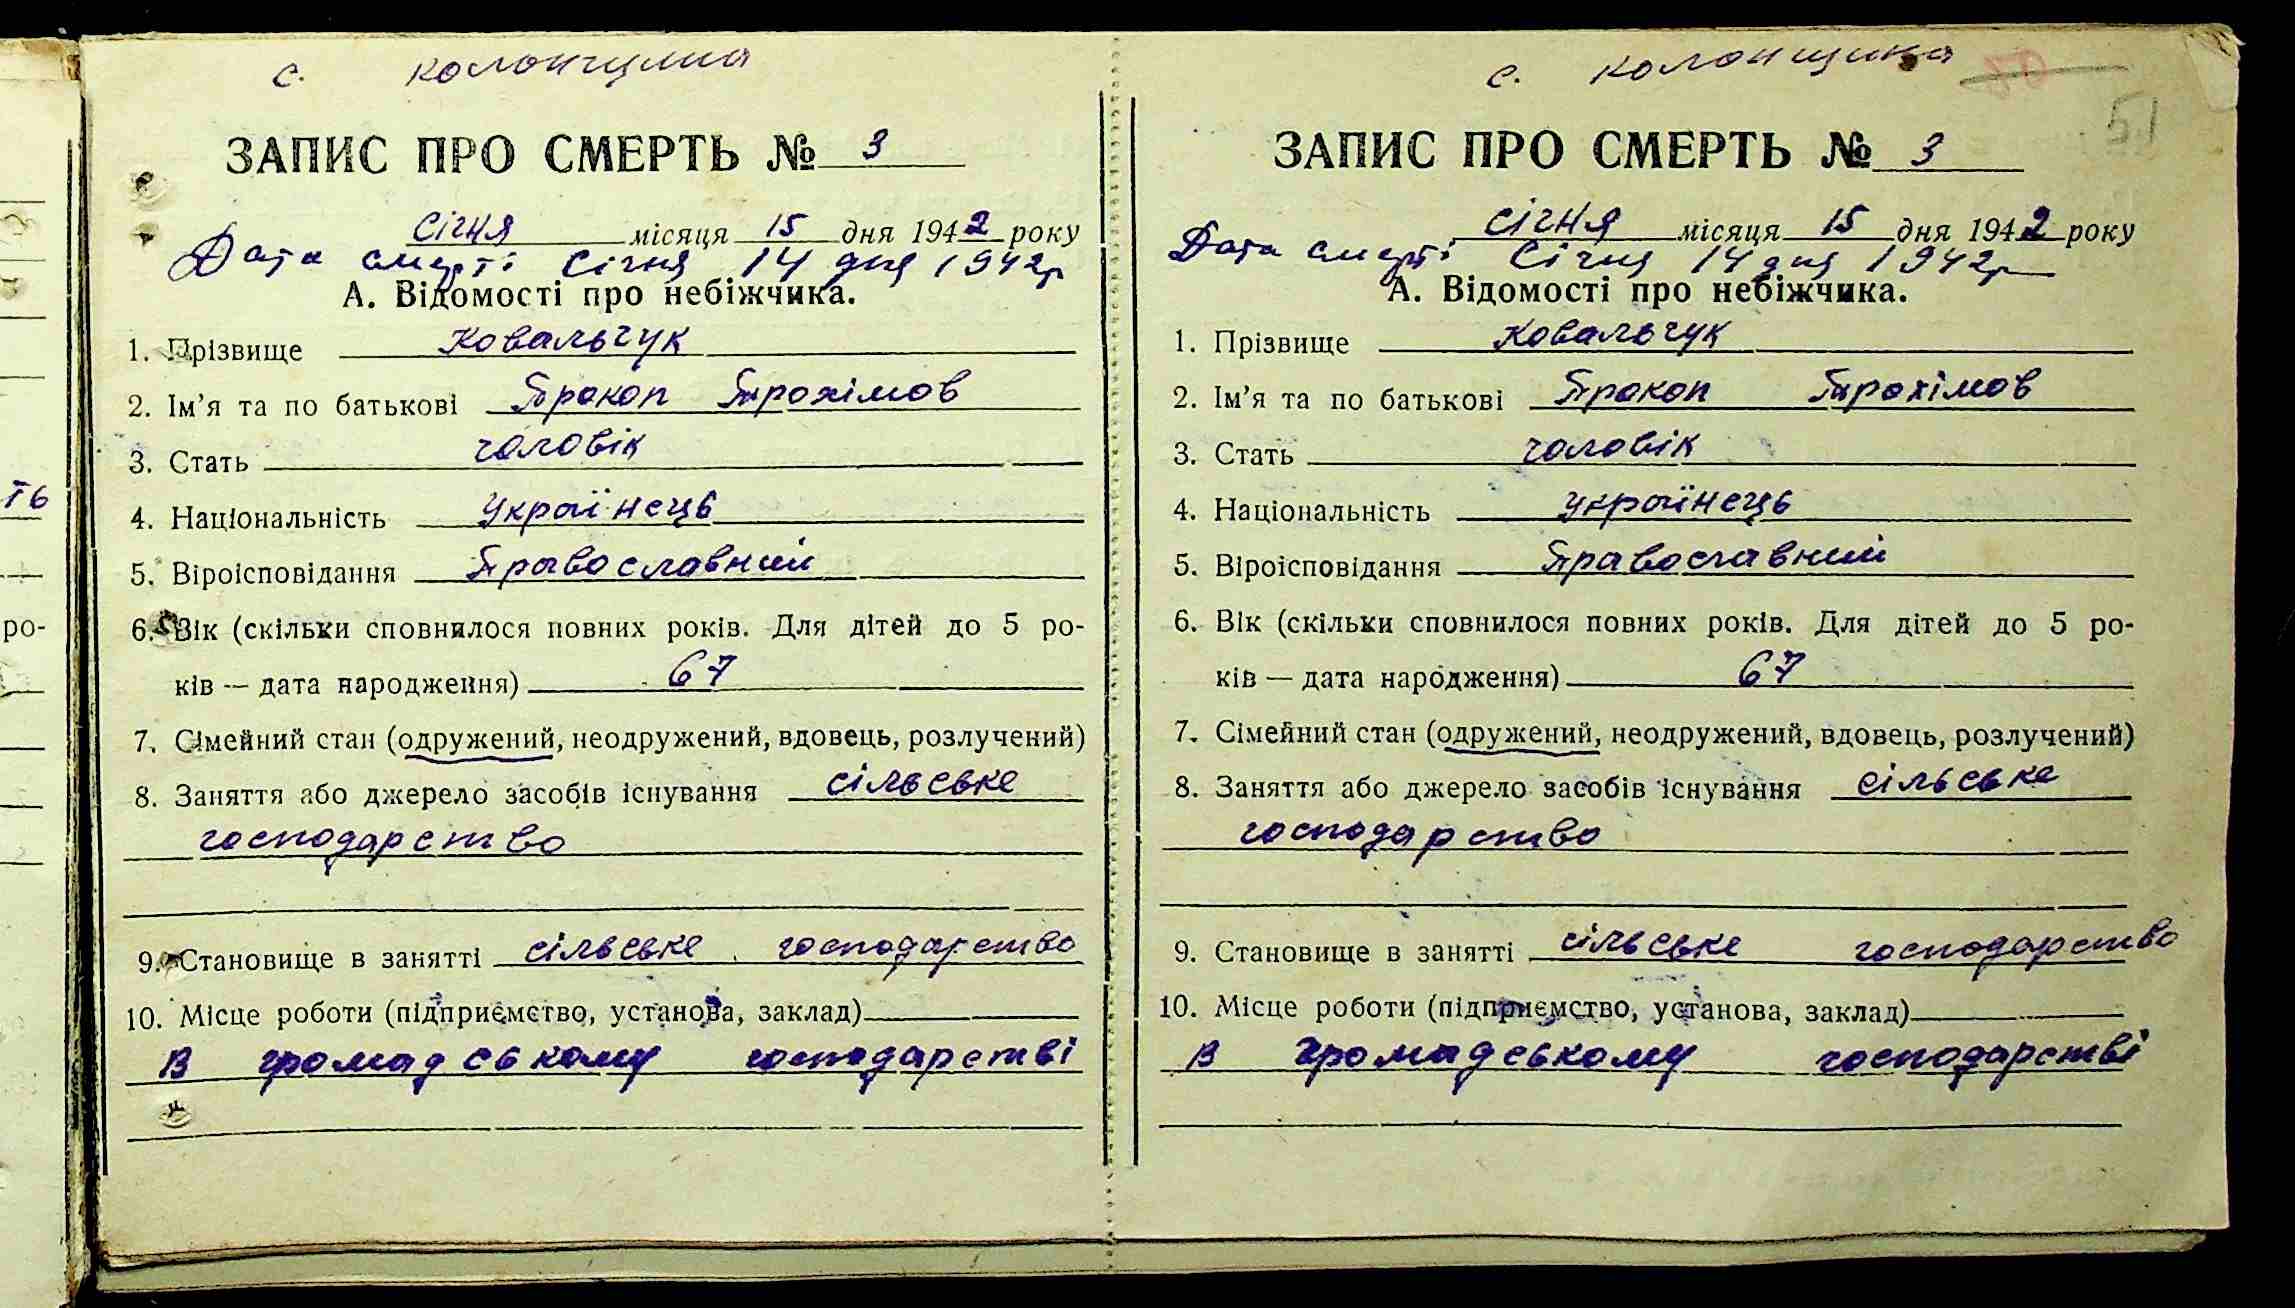 с. колонщина
ЗАПИС ПРО СМЕРТЬ № 3
січня місяця 15 дня 1942 року
Дата смерті січня 14 дня 1942р
А. Відомості про небіжчика.
1. Прізвище Ковальчук
2. Ім'я та по батькові Прокоп Трохімов
3. Стать чоловік
4. Національність українець
5. Віроісповідання Православний
6. Вік (скільки сповнилося повних років. Для дітей до 5 ро-
ків — дата народження) 67
7. Сімейний стан (одружений, неодружений, вдовець, розлучений)
8. Заняття або джерело засобів існування сільське
господарство
9. Становище в занятті сільське господарство
10. Місце роботи (підприємство, установа, заклад)
в громадському господарстві
с. колонщина
51
ЗАПИС ПРО СМЕРТЬ № 3
січня місяця 15 дня 1942 року
Дата смерті січня 14 дня 1942р
А. Відомості про небіжчика.
1. Прізвище Ковальчук
2. Ім'я та по батькові Прокоп Трохімов
3. Стать чоловік
4. Національність українець
5. Віроісповідання Православний
6. Вік (скільки сповнилося повних років. Для дітей до 5 ро-
ків — дата народження) 67
7. Сімейний стан (одружений, неодружений, вдовець, розлучений)
8. Заняття або джерело засобів існування сільське
господарство
9. Становище в занятті сільське господарство
10. Місце роботи (підприємство, установа, заклад)
в громадському господарстві